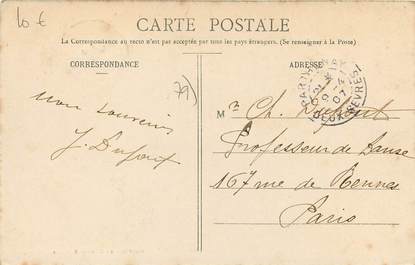 10 €
CARTE POSTALE
La Correspondance au recto n'est pas acceptée par tous les pays étrangers. (Se renseigner à la Poste)
CORRESPONDANCE
ADRESSE
PARTHENAY
9 -4
07
DEUX-SÈVRES
79
Mr Ch. Dufort
Mon souvenir
J. Dufort
Professeur de Danse
167 rue de Rennes
Paris